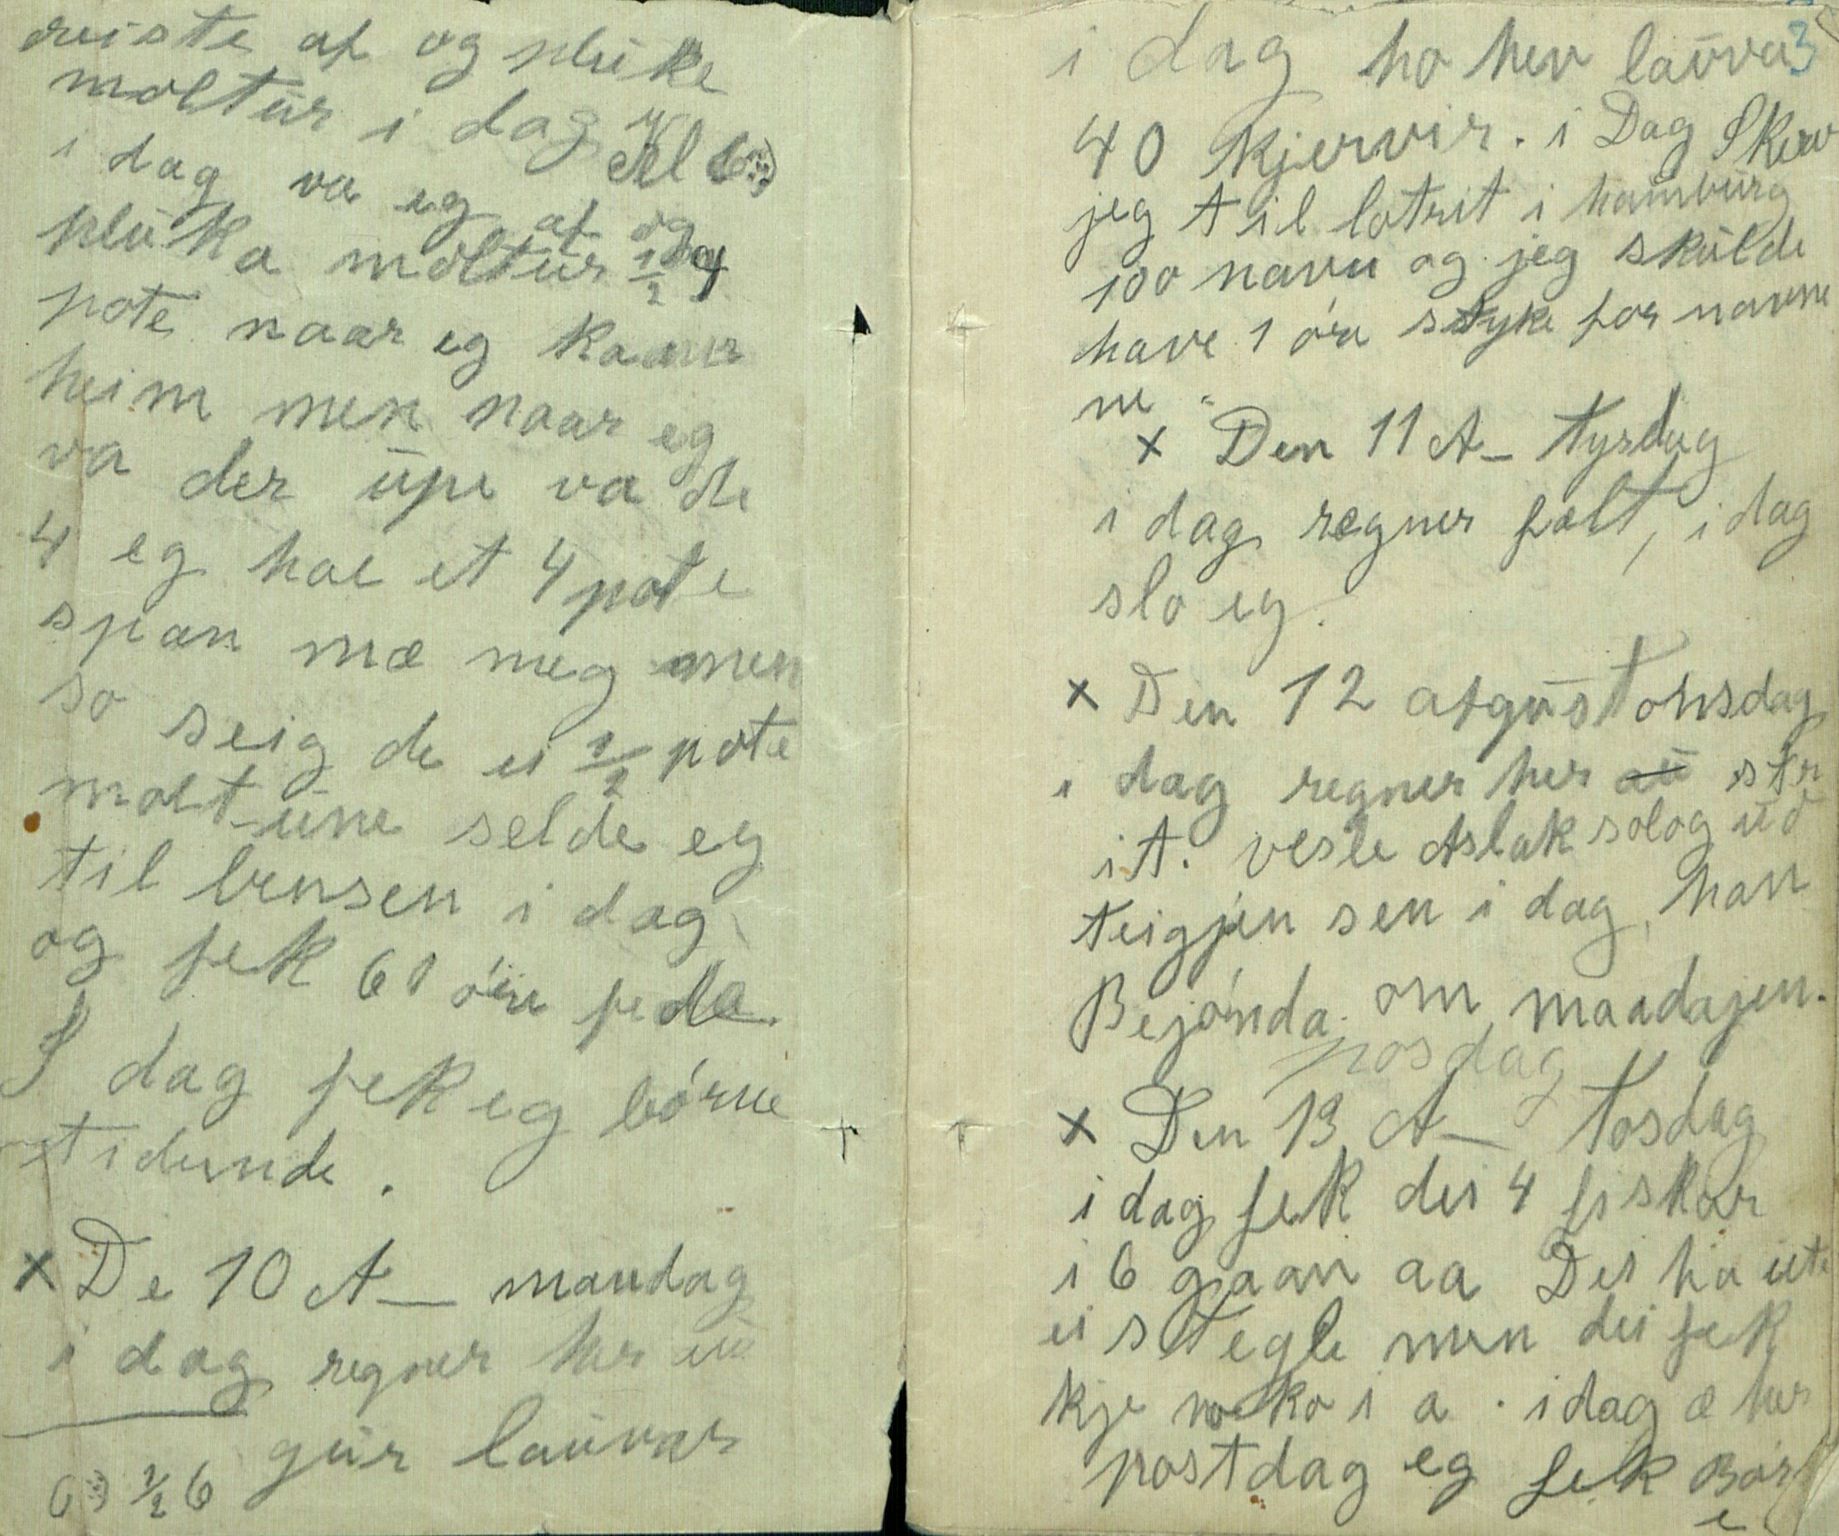 reiste af og pluke
moltur i dag Kl 6
i dag va eg af og
pluka moltur 1/2
pote naar eg kaam
heim men naar eg
va der upe va de
4 eg hae et 4 pote
span mæ meg men
so seig de ei 1/2 pote
molt-une selde eg
til lensen i dag
og fek 60 øre fe da.
I dag fek eg børne
tidende.
x De 10 A— mandag
i dag regner her
gur lauvar
1/2 6
3
i dag ho hev lauva
40 kjervir. i Dag Skrev
jeg til lotrit i hamburg
100 navn og jeg skulde
have 1 øre styke for navne
ne
x Den 11 A— Tysdag
i dag regner fælt, i dag
slo eg.
x Den 12 august onsdag
i dag regner her str
it. vesle Aslak solog ud
teigjen sen i dag, han
Bejønda om maadajen.
posdag
x Den 13 A— Tosdag
i dag fek dei 4 fiskar
i 6 gaan aa Dei ha ute
ei stegle men dei fek
kje noko i a. i dag æ her
postdag eg fek Bør
e